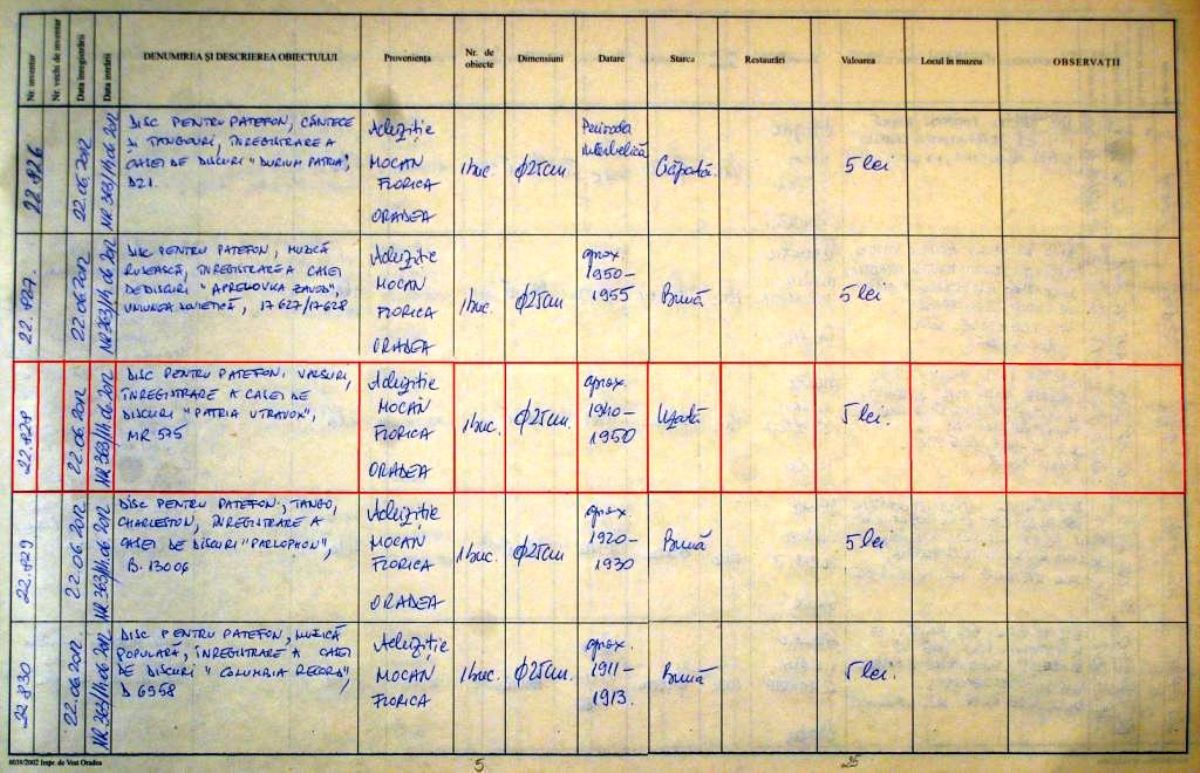 Nr. inventar
Nr. vechi de inventar
Data înregistrării
Data intrării
DENUMIREA ȘI DESCRIEREA OBIECTULUI
Proveniența
Nr. de
obiecte
Dimensiuni
Datare
Starea
Restaurări
Valoarea
Locul în muzeu
OBSERVAȚII
22.826
22.06.2012
NR 363/14.06.2012
DISC PENTRU PATEFON, CÂNTECE
ȘI TANGOURI, ÎNREGISTRARE A
CASEI DE DISCURI "DURIUM PATRIA",
D21.
Achiziție
MOCAN
FLORICA
ORADEA
1 buc.
ϕ25cm
Perioada
interbelică
Crăpată.
5 lei
22.827.
22.06.2012
NR 363/14.06.2012
DISC PENTRU PATEFON, MUZICĂ
RUSEASCĂ, ÎNREGISTRARE A CASEI
DE DISCURI "APRELOVKA ZAVOD",
UNIUNEA SOVIETICĂ, 17627/17628
Achiziție
MOCAN
FLORICA
ORADEA
1 buc.
ϕ25cm
aprox
1950-
1955
Bună
5 lei
22.828
22.06.2012
NR 363/14.06.2012
DISC PENTRU PATEFON. VALSURI,
ÎNREGISTRARE A CASEI DE
DISCURI "PATRIA VITAVOX",
MR 575
Achiziție
MOCAN
FLORICA
ORADEA
1 buc.
ϕ25cm.
aprox.
1940-
1950
Uzată
5 lei.
22.829
22.06.2012
NR 363/14.06.2012
DISC PENTRU PATEFON, TANGO,
CHARLESTON, ÎNREGISTRARE A
CASEI DE DISCURI "PARLOPHON",
B. 13006
Achiziție
MOCAN
FLORICA
ORADEA
1 buc.
ϕ25cm
aprox.
1920-
1930
Bună
5 lei
22.830
22.06.2012
NR 363/14.06.2012
DISC PENTRU PATEFON, MUZICĂ
POPULARĂ, ÎNREGISTRARE A CASEI
DE DISCURI "COLUMBIA RECORD",
D 6958
Achiziție
MOCAN
FLORICA
1 buc.
ϕ25cm.
aprox.
1911-
1913.
Bună
5 lei.
8038/2002 Impr. de Vest Oradea
5
25